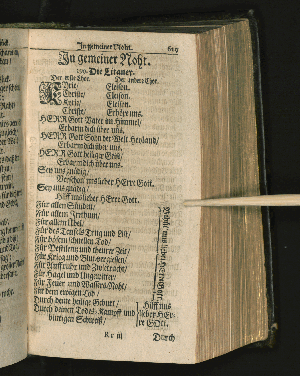 In gemeiner Noht. 619
In gemeiner Noht.
Die Litaney.
Der erste Chor. Der ander Chor.
KYrie/ Eleison.
Christe/ Eleison.
Kyrie/ Eleison.
Christe/ Erhöre uns.
HERR Gott Vater im Himmel/
Erbarm dich über uns.
HERR Gott Sohn der Welt Heyland/
Erbarm dich über uns.
HERR Gott heiliger Geist/
Erbarm dich über uns.
Sey uns gnädig/
Verschon uns lieber HErre Gott.
Sey uns gnädig/
Hilff uns lieber HErre Gott.
Für allen Sünden/
Für allem Irrthum/
Für allem Übel/
Für des Teufels Trug und List/
Für bösem schnellen Tod/
Für Pestilentz und theurer Zeit/
Für Krieg und Blutvergiessen/
Für Auffruhr und Zwietracht/
Für Hagel und Ungewitter/
Für Feuer und Wassers-Noht/
Für dem ewigen Tod/
Behüt uns lieber HErre Gott.
Durch deine heilige Geburt/
Durch deinen Todes-Kampff und
blutigen Schweiß/
Hilff uns
lieber HEr-
re GOtt.
Durch